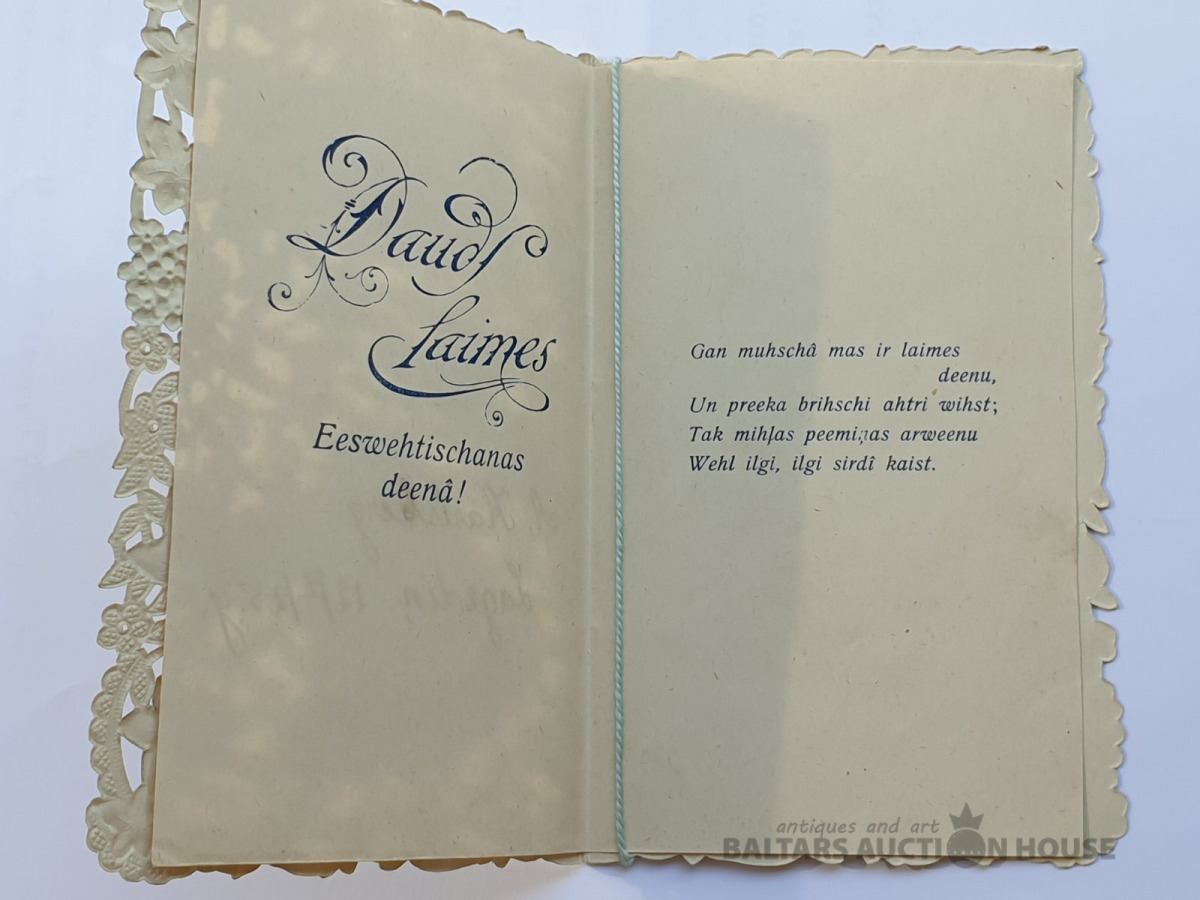 Daudſ
laimes
Eeswehtischanas
deenâ!
Gan muhschâ mas ir laimes
deenu,
Un preeka brihschi ahtri wihst;
Tak mihļas peemiņas arweenu
Wehl ilgi, ilgi sirdî kaist.
antiques and art
BALTARS AUCTION HOUSE